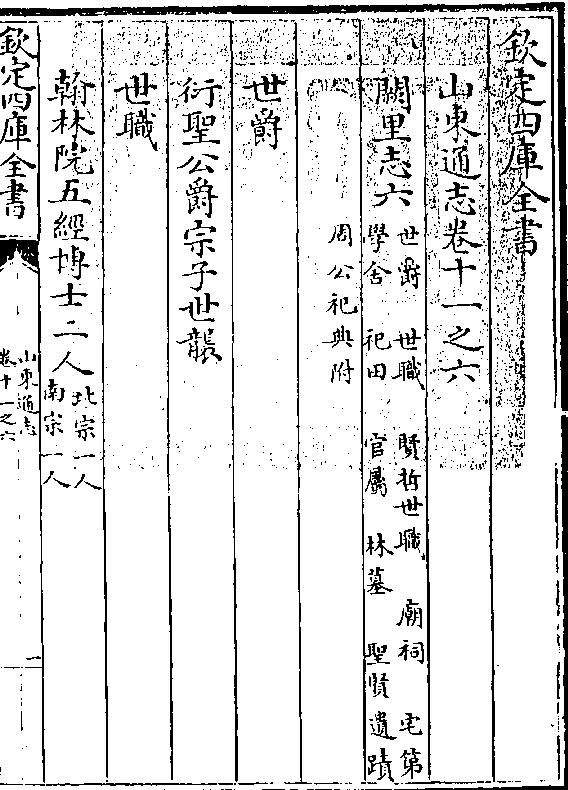 欽定四庫全書
山東通志卷十一之六
闕里志六
世爵　世職　賢哲世職　廟祠　宅第
學舍　祀田　官屬　林墓　聖賢遺蹟
周公祀典附
世爵
衍聖公爵宗子世襲
世職
翰林院五經博士二人
北宗一人
南宗一人
欽定四庫全書
山東通志
卷十一之六
一